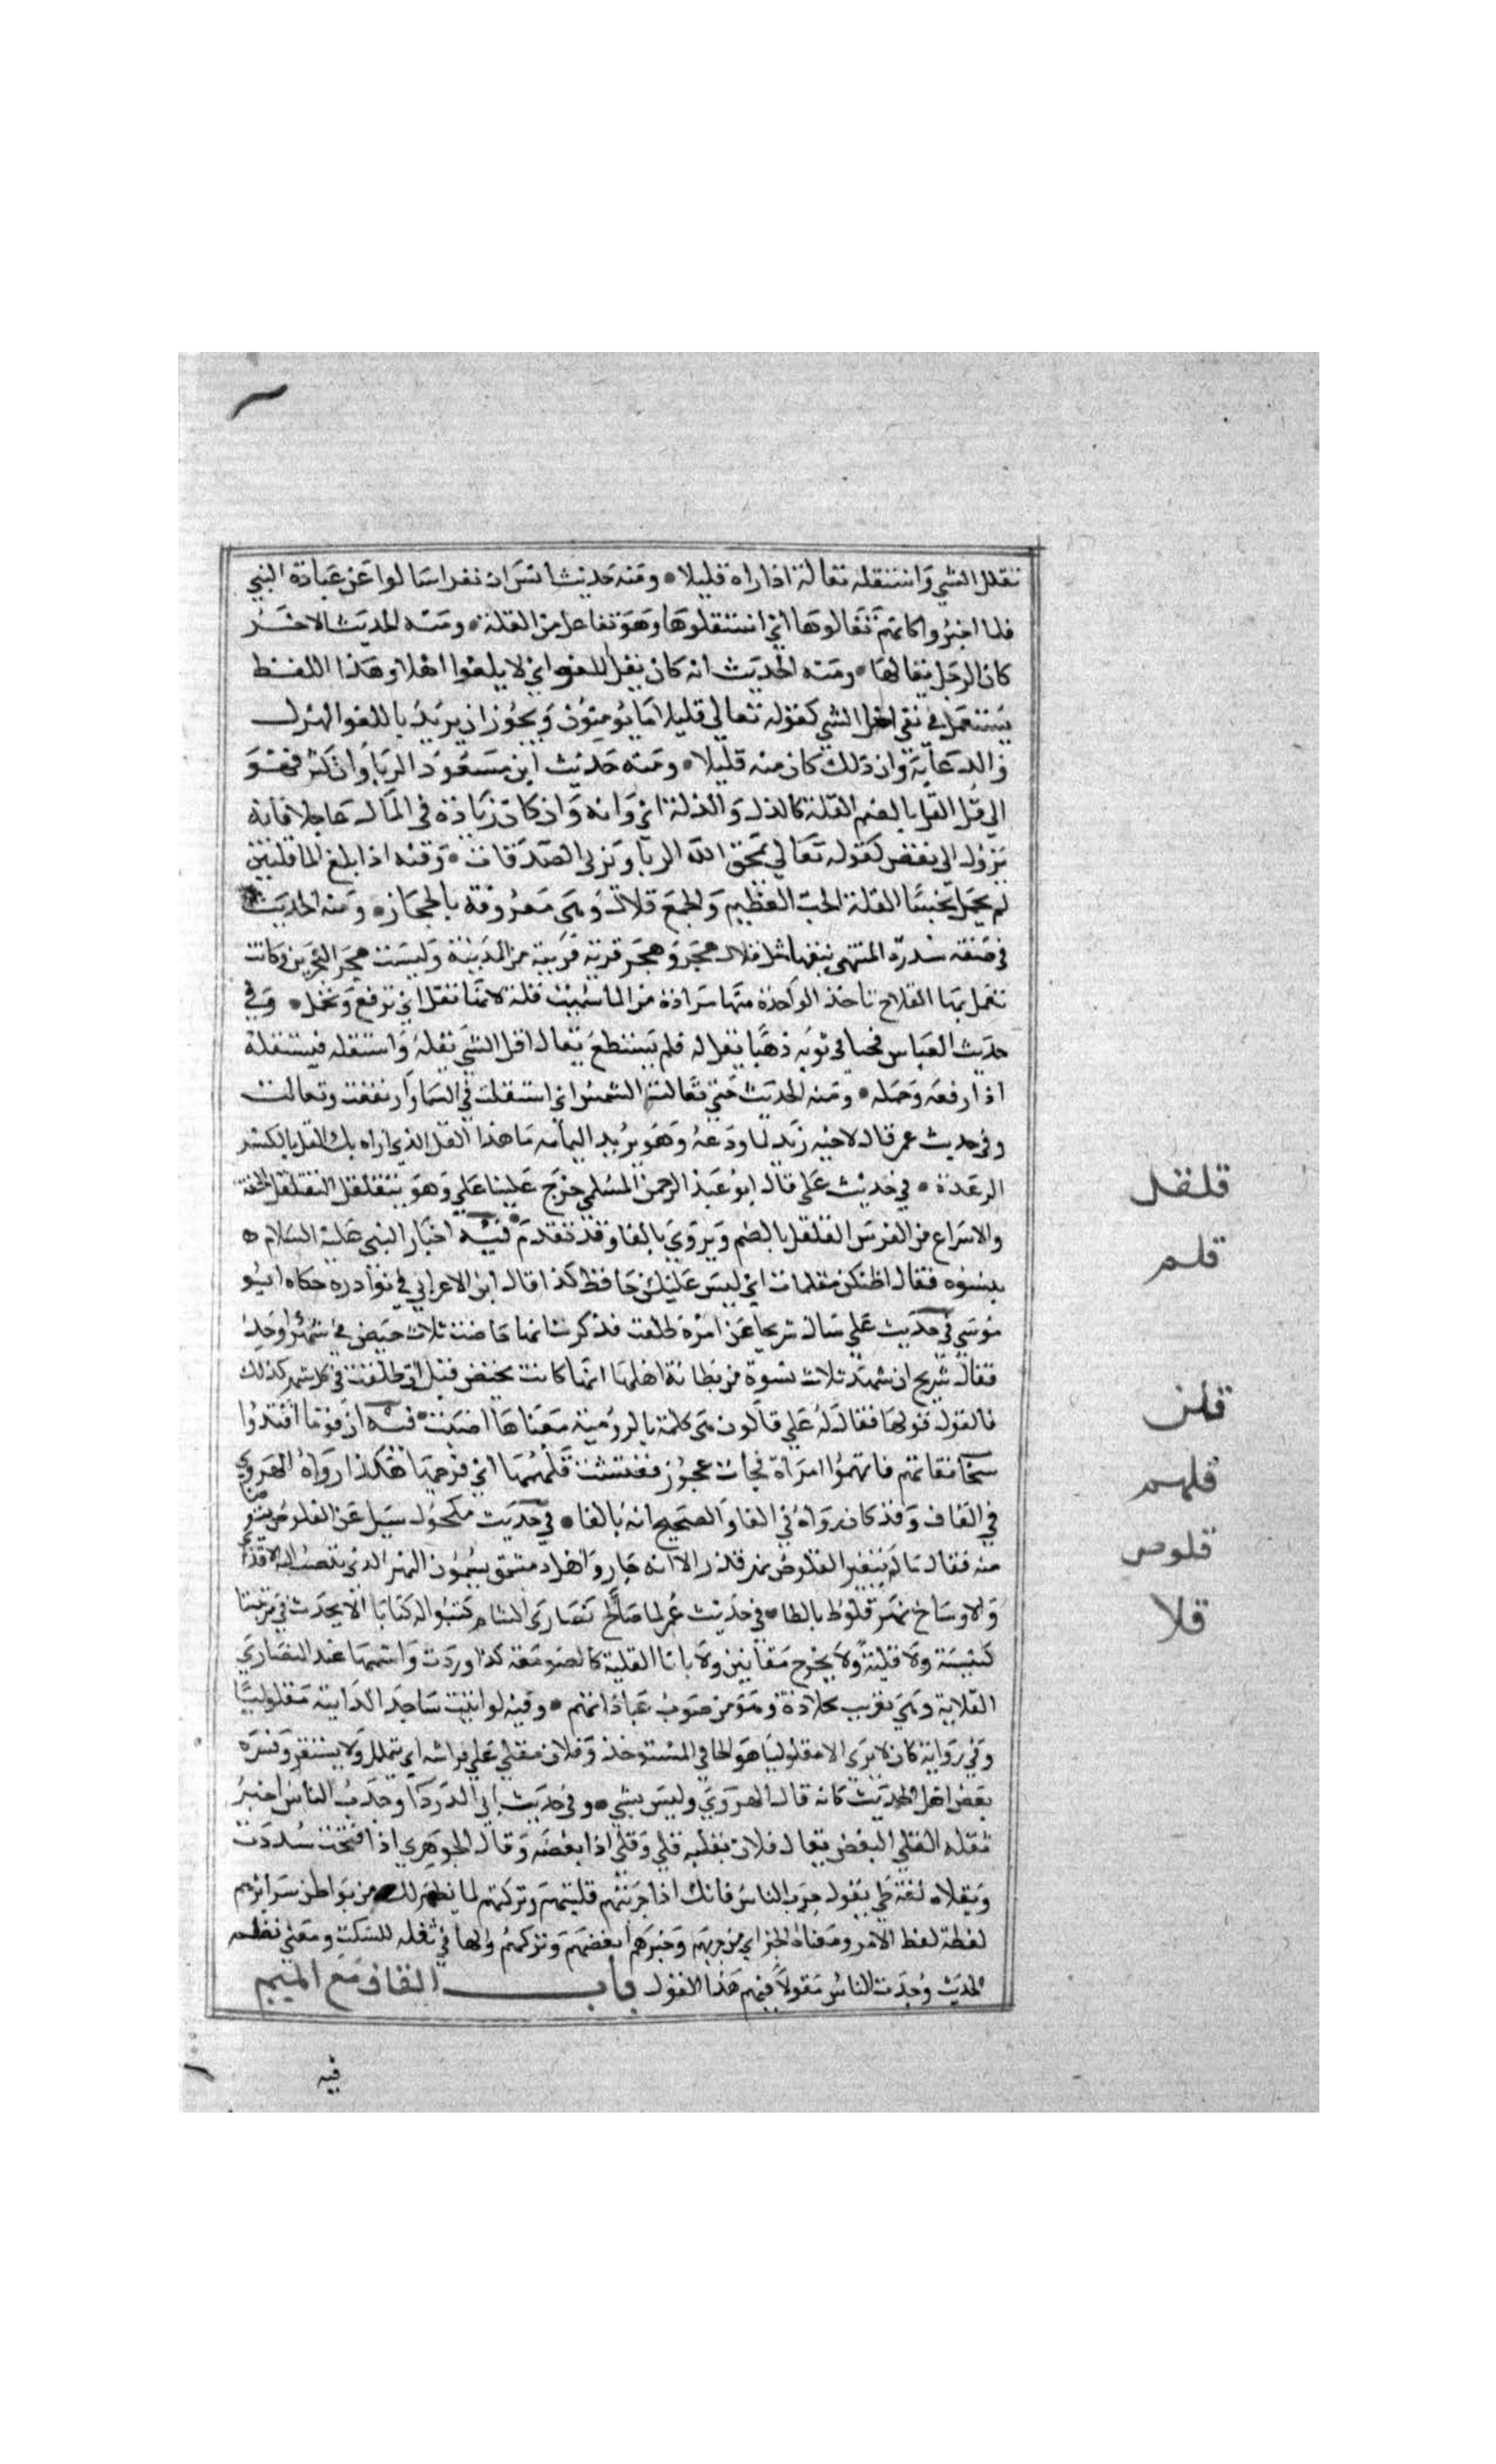 تقلل الشي واستقله تقاله اذا راه قليلا ومنه حديث انس ان نفرا سالوا عن عبادة النبي
فلما اخبروا كانهم تقالوها اي استقلوها وهو تفاعل من القلة ومنه الحديث الاخر
كان الرجل يتقالها ومنه الحديث انه كان يقل اللغو اي لا يلغوا اصلا وهذا اللفظ
يستعمل في نفي اصل الشي كقوله تعالي قليلا ما يومنون ويجوز ان يريد باللغو الهزل
والدعابة وان ذلك كان منه قليلا ومنه حديث ابن مسعود الربا وان كثر فهو
الي قل القل بالضم القلة كالذل والذلة اي وانه وان كان زيادة في المال عاجلا فانه
يزول الي نقص كقوله تعالي يمحق الله الربا ويربي الصدقات وفيه اذا بلغ الما قلتين
لم يحمل خبثا القلة الحب العظيم والجمع قلال وهي معروفة بالحجاز ومنه الحديث
في صفة سدرة المنتهي نبقها مثل قلال هجر وهجر قرية قريبة من المدينة وليست هجر البحرين وكانت
تعمل بها القلال تاخذ الواحدة منها مزادة من الما سميت قلة لانها تقل اي ترفع وتحمل وفي
حديث العباس فحثا في ثوبه ذهبا يقله فلم يستطع يقال اقل الشي يقله واستقله يستقله
اذا رفعه وحمله ومنه الحديث حتي تقالت الشمس اي استقلت في السما وارتفعت وتعالت
وفي حديث عمر قال لاخيه زيد لما ودعه وهو يريد اليمامه ما هذا القل الذي اراه بك القل بالكسر
الرعدة في حديث علي قال ابو عبد الرحمن السلمي خرج علينا علي وهو يتقلقل التقلقل الخفة
والاسراع من الفرس القلقل بالضم ويروي بالفا وقد تقدم فيه اجتاز النبي عليه السلام
بنسوه فقال اظنكن مقلمات اي ليس عليكن حافظ كذا قال ابن الاعرابي في نوادره حكاه ابو
موسي في حديث علي سال شريحا عن امرة طلقت فذكرت انها حاضت ثلاث حيض في شهر واحد
فقال شريح ان شهد ثلاث نسوة من بطانة اهلها انها كانت تحيض قبل ان طلقت في كل شهر كذلك
فالقول قولها فقال له علي قالون هي كلمة بالرومية معناها اصبت فيه ان قوما افتقدوا
سخاب فتاتهم فاتهموا امراة فجات عجوز ففتشت قلهمها اي فرجها هكذا رواه الهروي
في القاف وقد كان رواه في الفا والصحيح انه بالفا في حديث مكحول سيل عن القلوص يتوضا
منه فقال ما لم يتغير القلوص نهر قذر الا انه جار واهل دمشق يسمون النهر الذي تنصب اليه الاقذار
والاوساخ نهر قلوط بالطا في حديث عمر لما صالح نصاري الشام كتبوا له كتابا الا يحدث في مدينتنا
كنيسة ولا قلية ولا يخرج سعانين ولا باعوثا القلية كالصومعة كذا وردت واسمها عند النصاري
القلاية وهي تعريب كلاذة وهو من بيوت عباداتهم وفيه لو رايت ساجدا لرايته مقلوليا
وفي رواية كان لا يري الا مقلوليا هو المتجافي المستوفز وفلان يتقلي علي فراشه اي يتململ ولا يستقر وفسره
بعض اهل الحديث كانه قال الهروي وليس بشي وفي حديث ابي الدردا وجدت الناس اخبر
تقله القلي البغض يقال فلان يقليه قلي وقلا اذا ابغضه وقال الجوهري اذا فتحت مددت
ويقلاه لغة طي يقول جرب الناس فانك اذا جربتهم قليتهم وتركتهم لما يظهر لك من بواطن سرايرهم
لفظه لفظ الامر ومعناه الخبر اي من جربهم وخبرهم ابغضهم وتركهم والها في تقله للسكت ومعني نظم
الحديث وجدت الناس مقولا فيهم هذا القول باب القاف مع الميم
فيه
قلقل
قلم
قلن
قلهم
قلوص
قلا